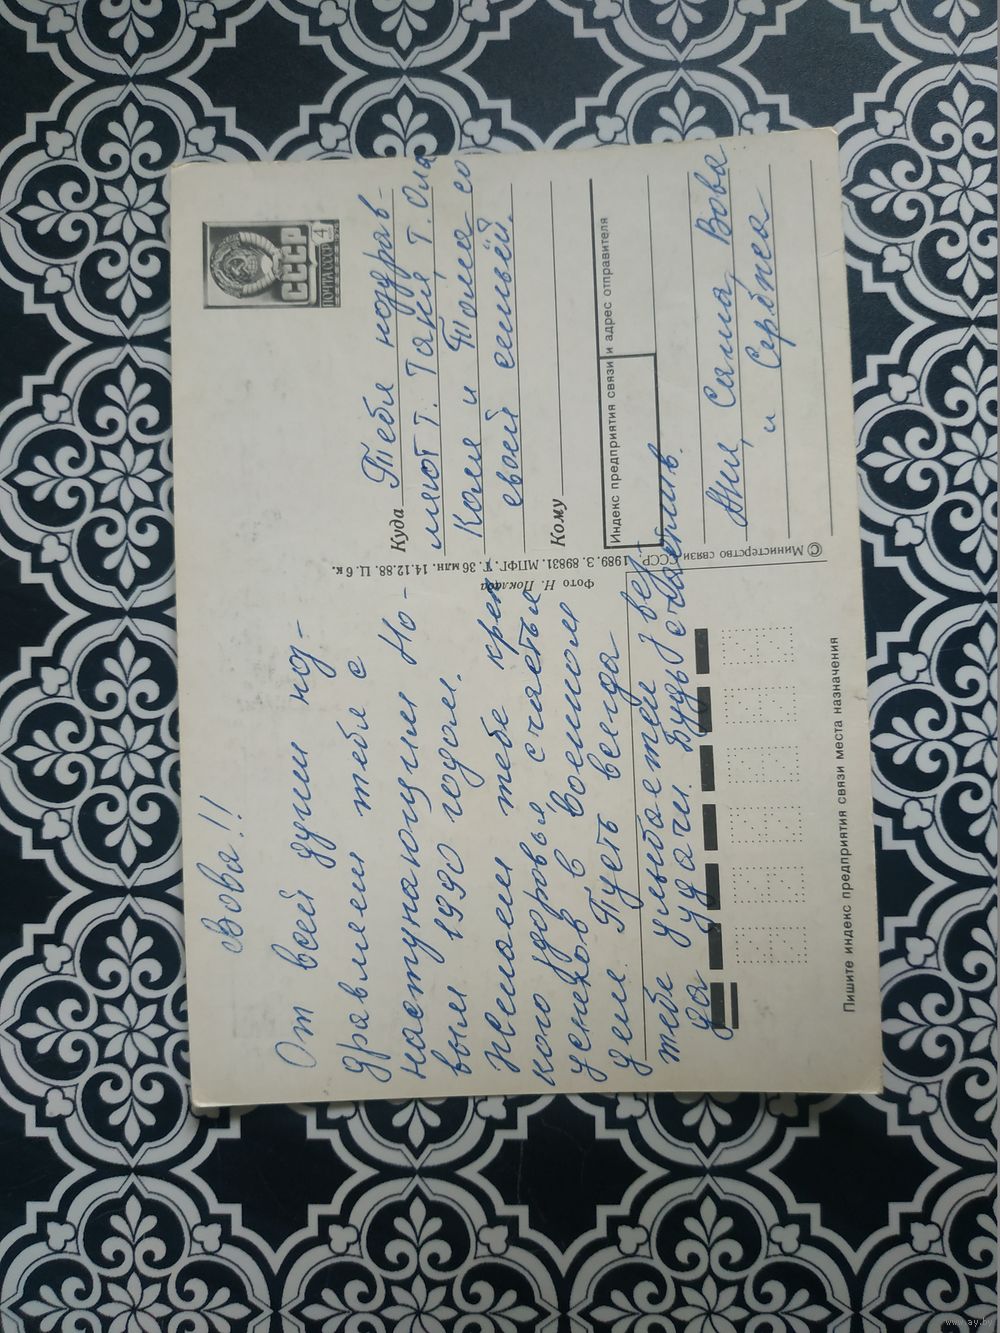 Вова!!
От всей души по-
здравляем тебя с
наступающим Но-
вым 1990 годом.
Желаем тебе креп
кого здоровья счастья
успехов в военном
деле. Пусть всегда
тебе улыбается звез
да удачи. Будь счастлив.
ПОЧТА СССР
СССР
4
Куда Тебя поздрав-
ляют т. Таня, т. Оля
Коля и Толя со
своей семьёй.
Кому
Индекс предприятия связи и адрес отправителя
Аня, Саша, Вова
и Серёжа
Фото Н. Поклада
© Министерство связи СССР. 1989. З. 89831. МПФГ. Т. 36 млн. 14.12.88. Ц. 6 к.
Пишите индекс предприятия связи места назначения
www.ay.by